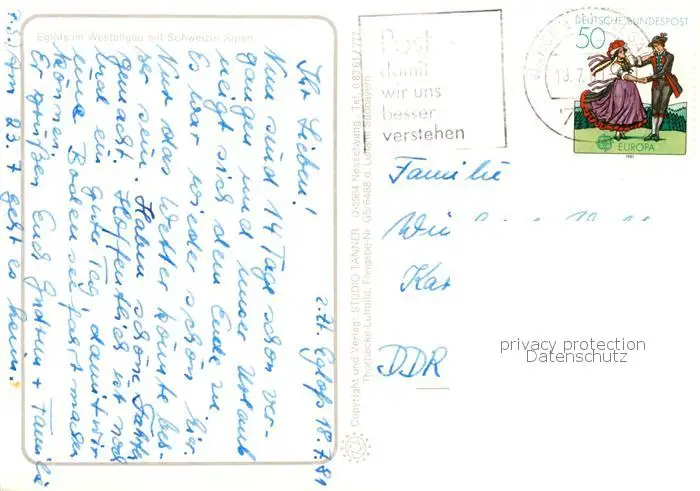 Eglofs im Westallgäu mit Schweizer Alpen
z.Zt. Eglofs 18.7.81
Ihr Lieben!
Nun sind 14 Tage schon ver-
gangen und unser Urlaub
neigt sich dem Ende zu.
Es war wieder schön hier.
Nur das Wetter könnte bes-
ser sein. Haben schöne Fahrten
gemacht. Hoffentlich ist noch
mal ein guter Tag, damit wir
eine Bodenseefahrt machen
können.
Er grüßen Euch Gudrun + Familie
Am 23.7 geht es heim.
Copyright und Verlag: STUDIO TANNER D-8964 Nesselwang Tel. 0 83 61 / 777
Thorbecke-Luftbild, Freigabe-Nr. d. Luftamt Südbayern
Post
damit
wir uns
besser
verstehen
18.7.
DEUTSCHE BUNDESPOST
50
EUROPA
1981
Familie
DDR
privacy protection
Datenschutz